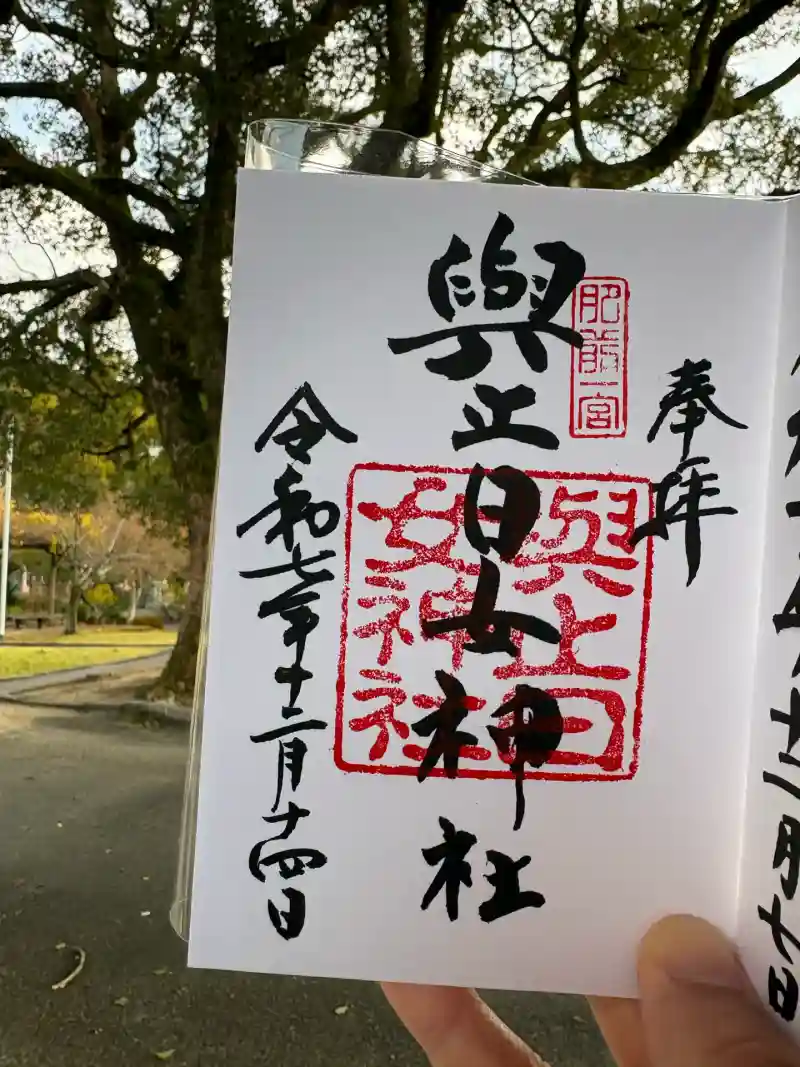 十二月七日
奉拝
肥前一宮
與止日女神社
與止日
女神社
令和七年十二月十四日